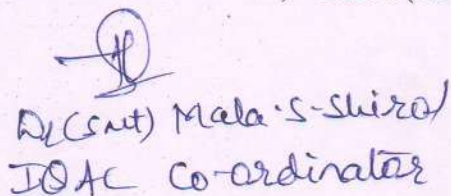 Dr(smt) Mala.S.Shirol
IQAC Co-ordinator